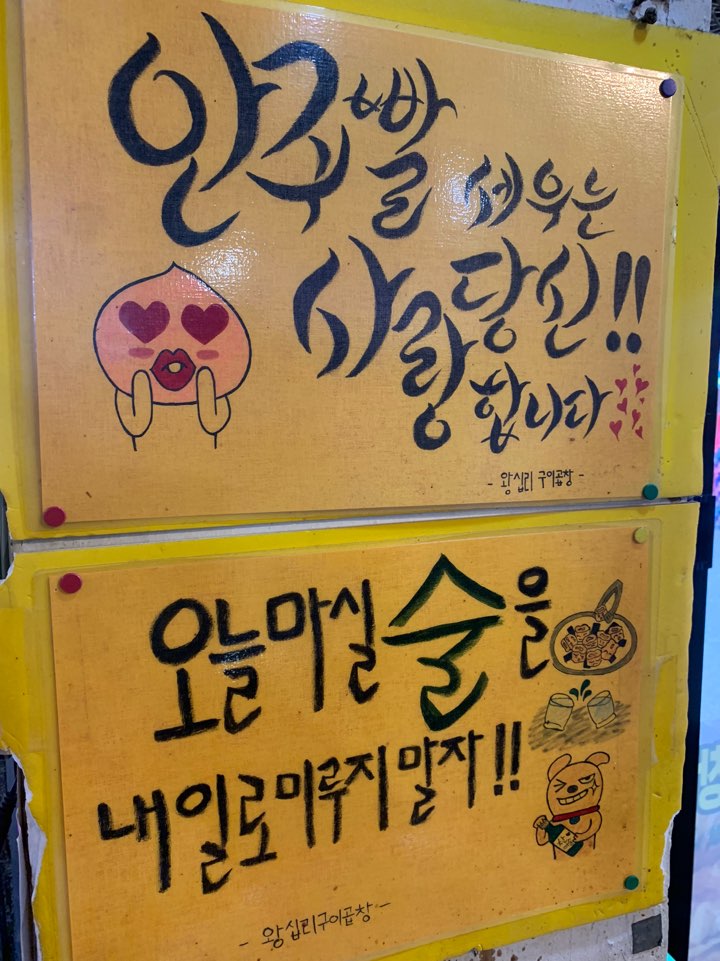 안구빨 세우는
사랑 당신!!
합니다
- 왕십리 구이곱창 -
오늘 마실 술을
내일로 미루지 말자!!
- 왕십리구이곱창 -